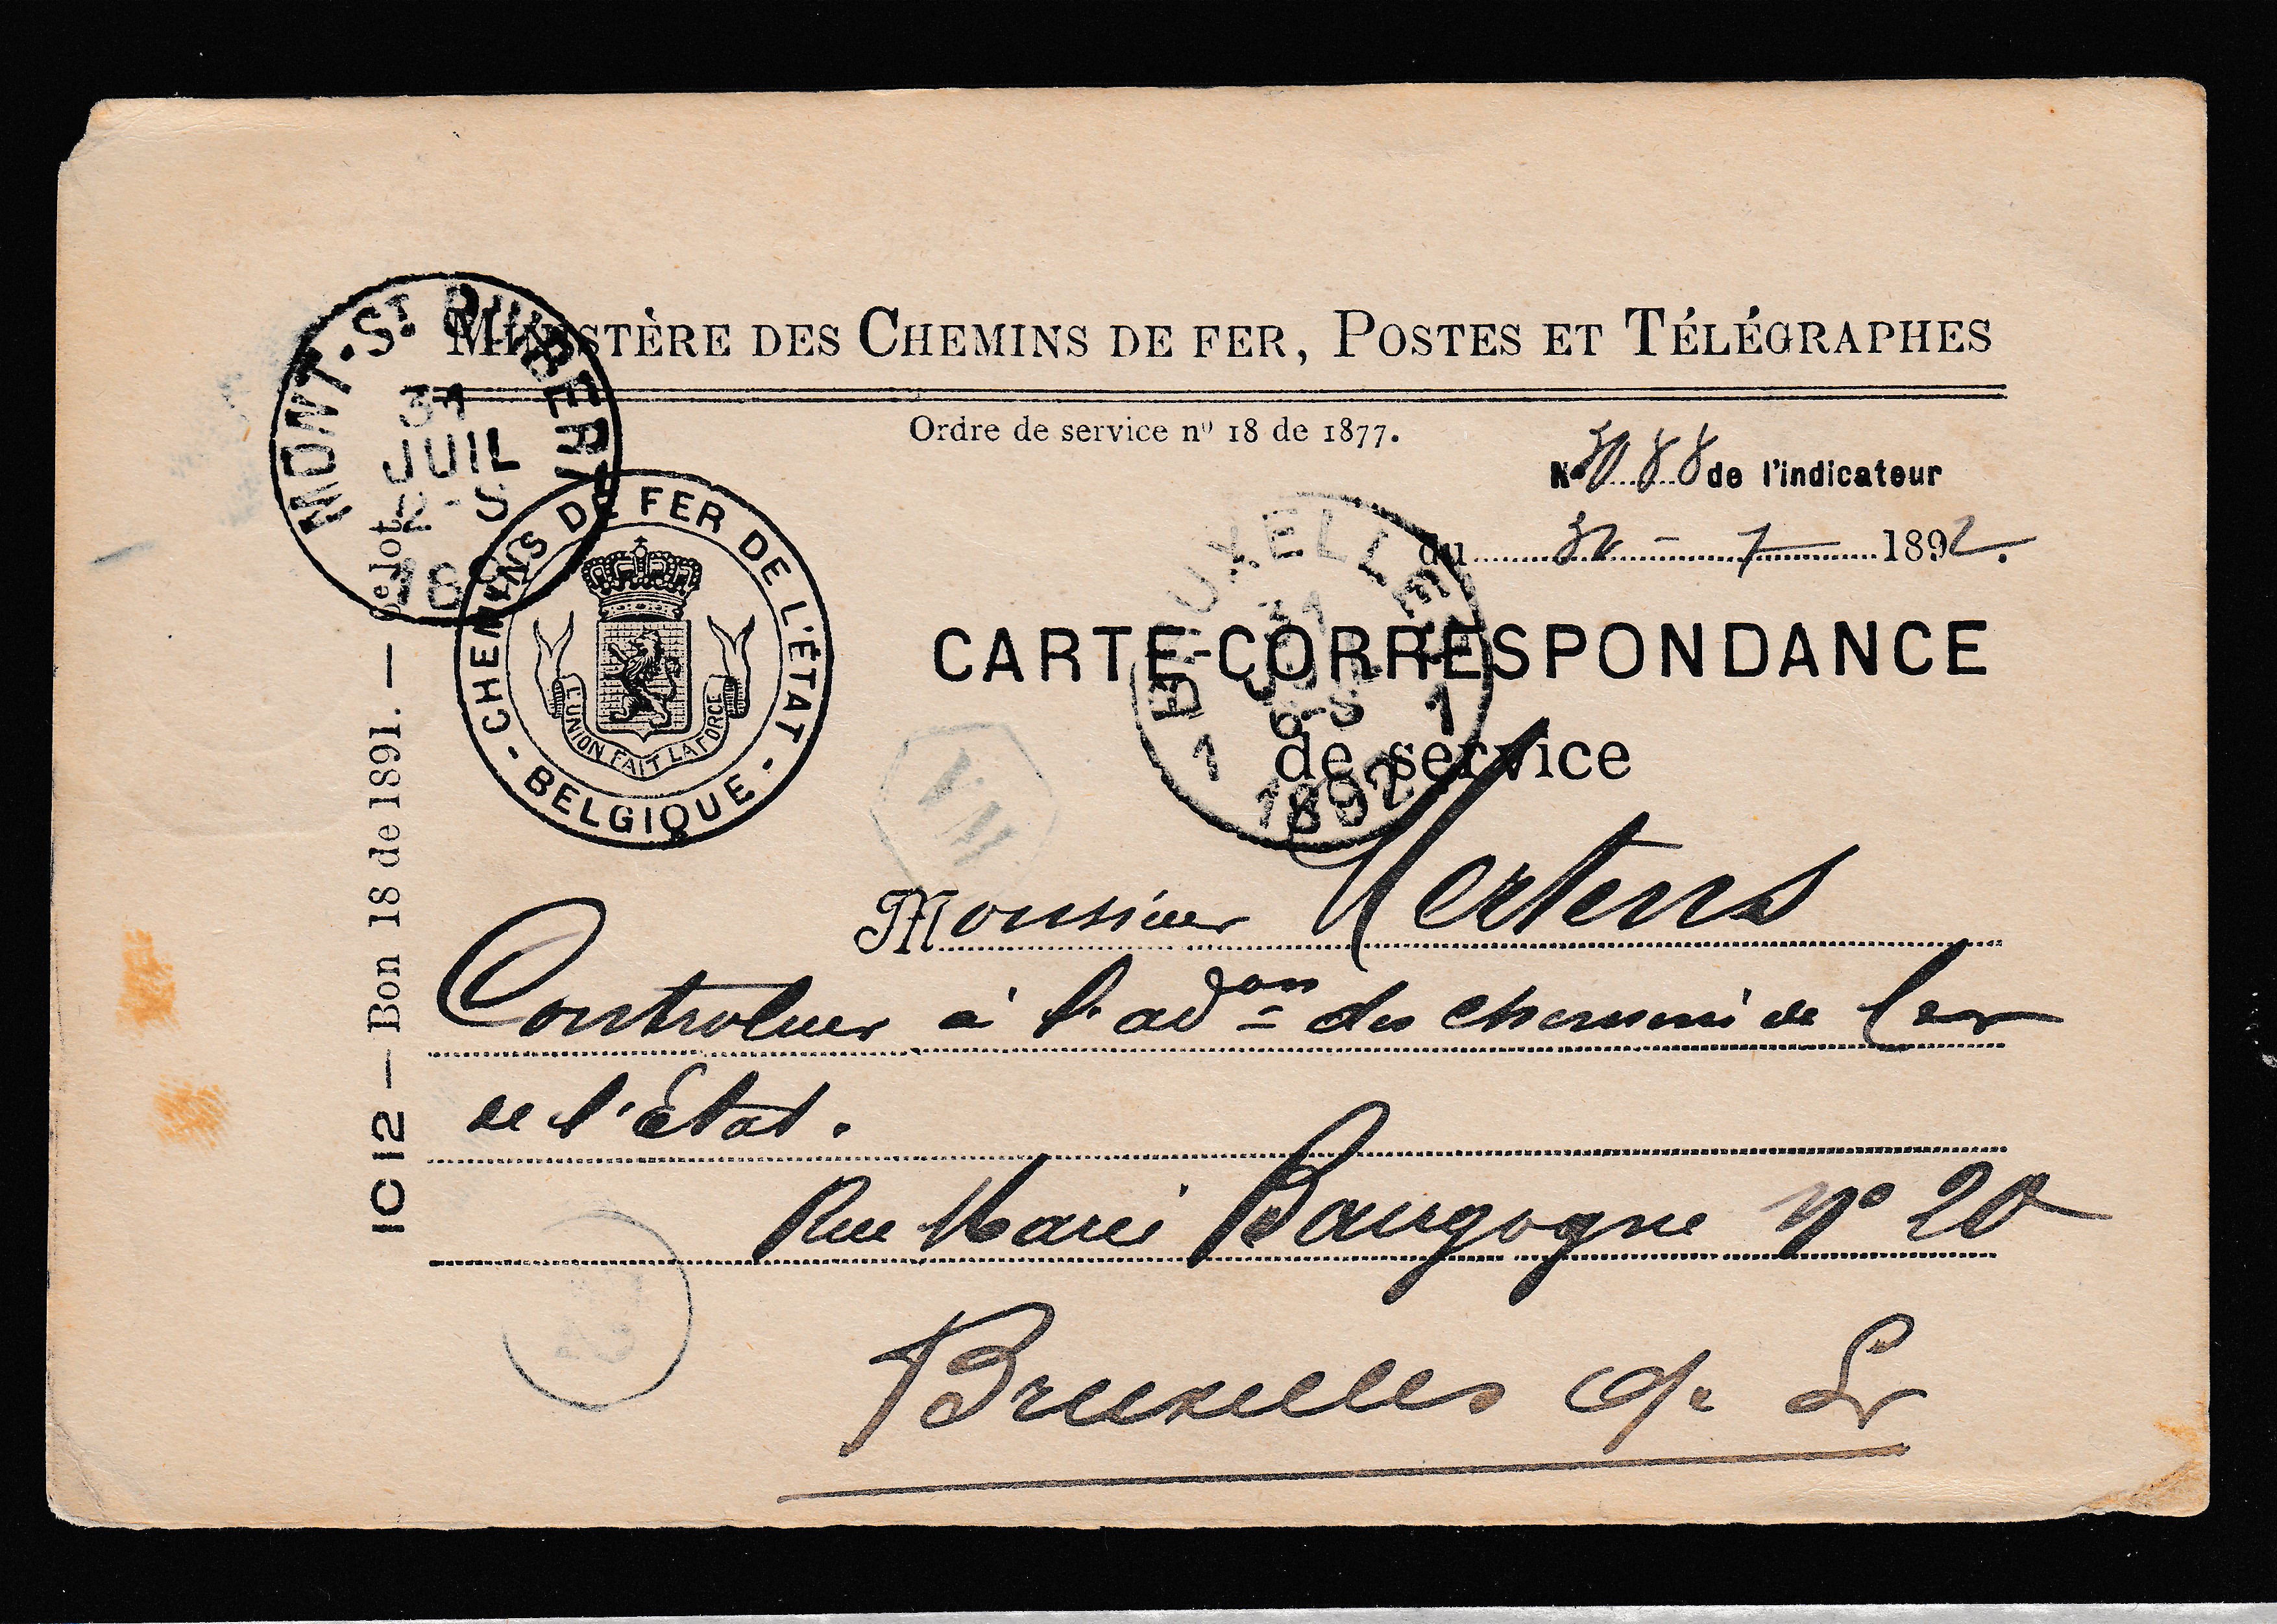 MINISTÈRE DES CHEMINS DE FER, POSTES ET TÉLÉGRAPHES
Ordre de service nº 18 de 1877.
MONT-ST GUIBERT
31
JUIL
2-S
18
Nº 3088 de l'indicateur
du 30 - 7 1892.
CHEMINS DE FER DE L'ÉTAT
- BELGIQUE -
L'UNION FAIT LA FORCE
BRUXELLES
31
JUIL
6-S
1 1
1892
CARTE-CORRESPONDANCE
de service
VII
Monsieur Mertens
Controleur à l'adon des chemins de fer
de l'Etat.
Rue Marie Bourgogne Nº 20
Bruxelles
IC 12 — Bon 18 de 1891. — lot.